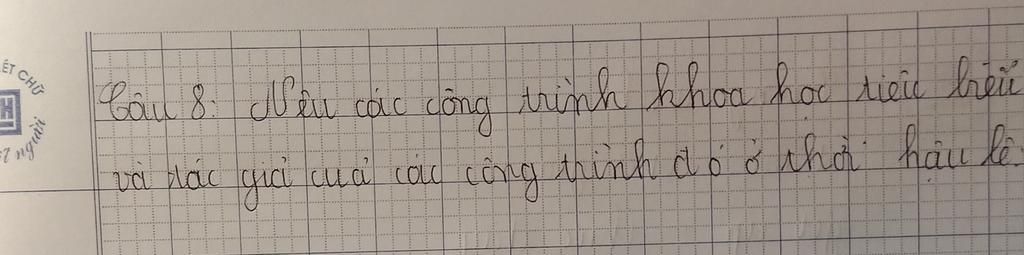 ẾT CHỮ
người
Câu 8: Nêu các công trình khoa học tiêu biểu
và tác giả của các công trình đó ở thời hậu lê.